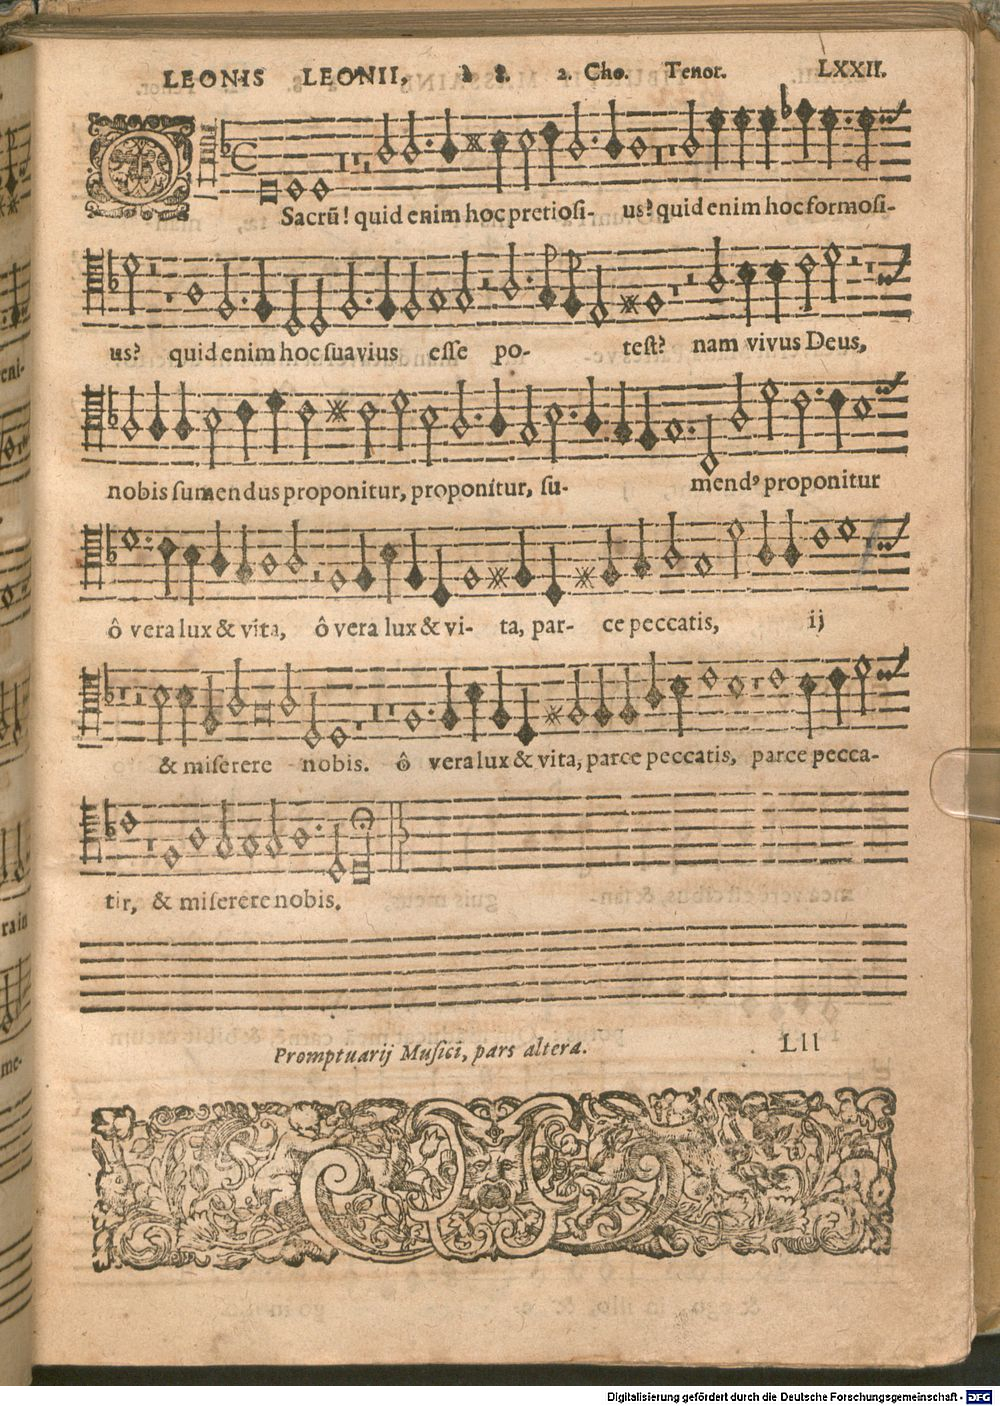 LEONIS LEONII, à 8. 2. Cho. Tenor. LXXII.
O Sacrũ! quid enim hoc pretiosi- us? quid enim hoc formosi-
us? quid enim hoc suavius esse po- test? nam vivus Deus,
nobis sumendus proponitur, proponitur, su- mendꝰ proponitur
ô vera lux & vita, ô vera lux & vi- ta, par- ce peccatis, ij
& miserere nobis. ô vera lux & vita, parce peccatis, parce pecca-
tir, & miserere nobis.
Promptuarij Musici, pars altera. Lll
Digitalisierung gefördert durch die Deutsche Forschungsgemeinschaft - DFG